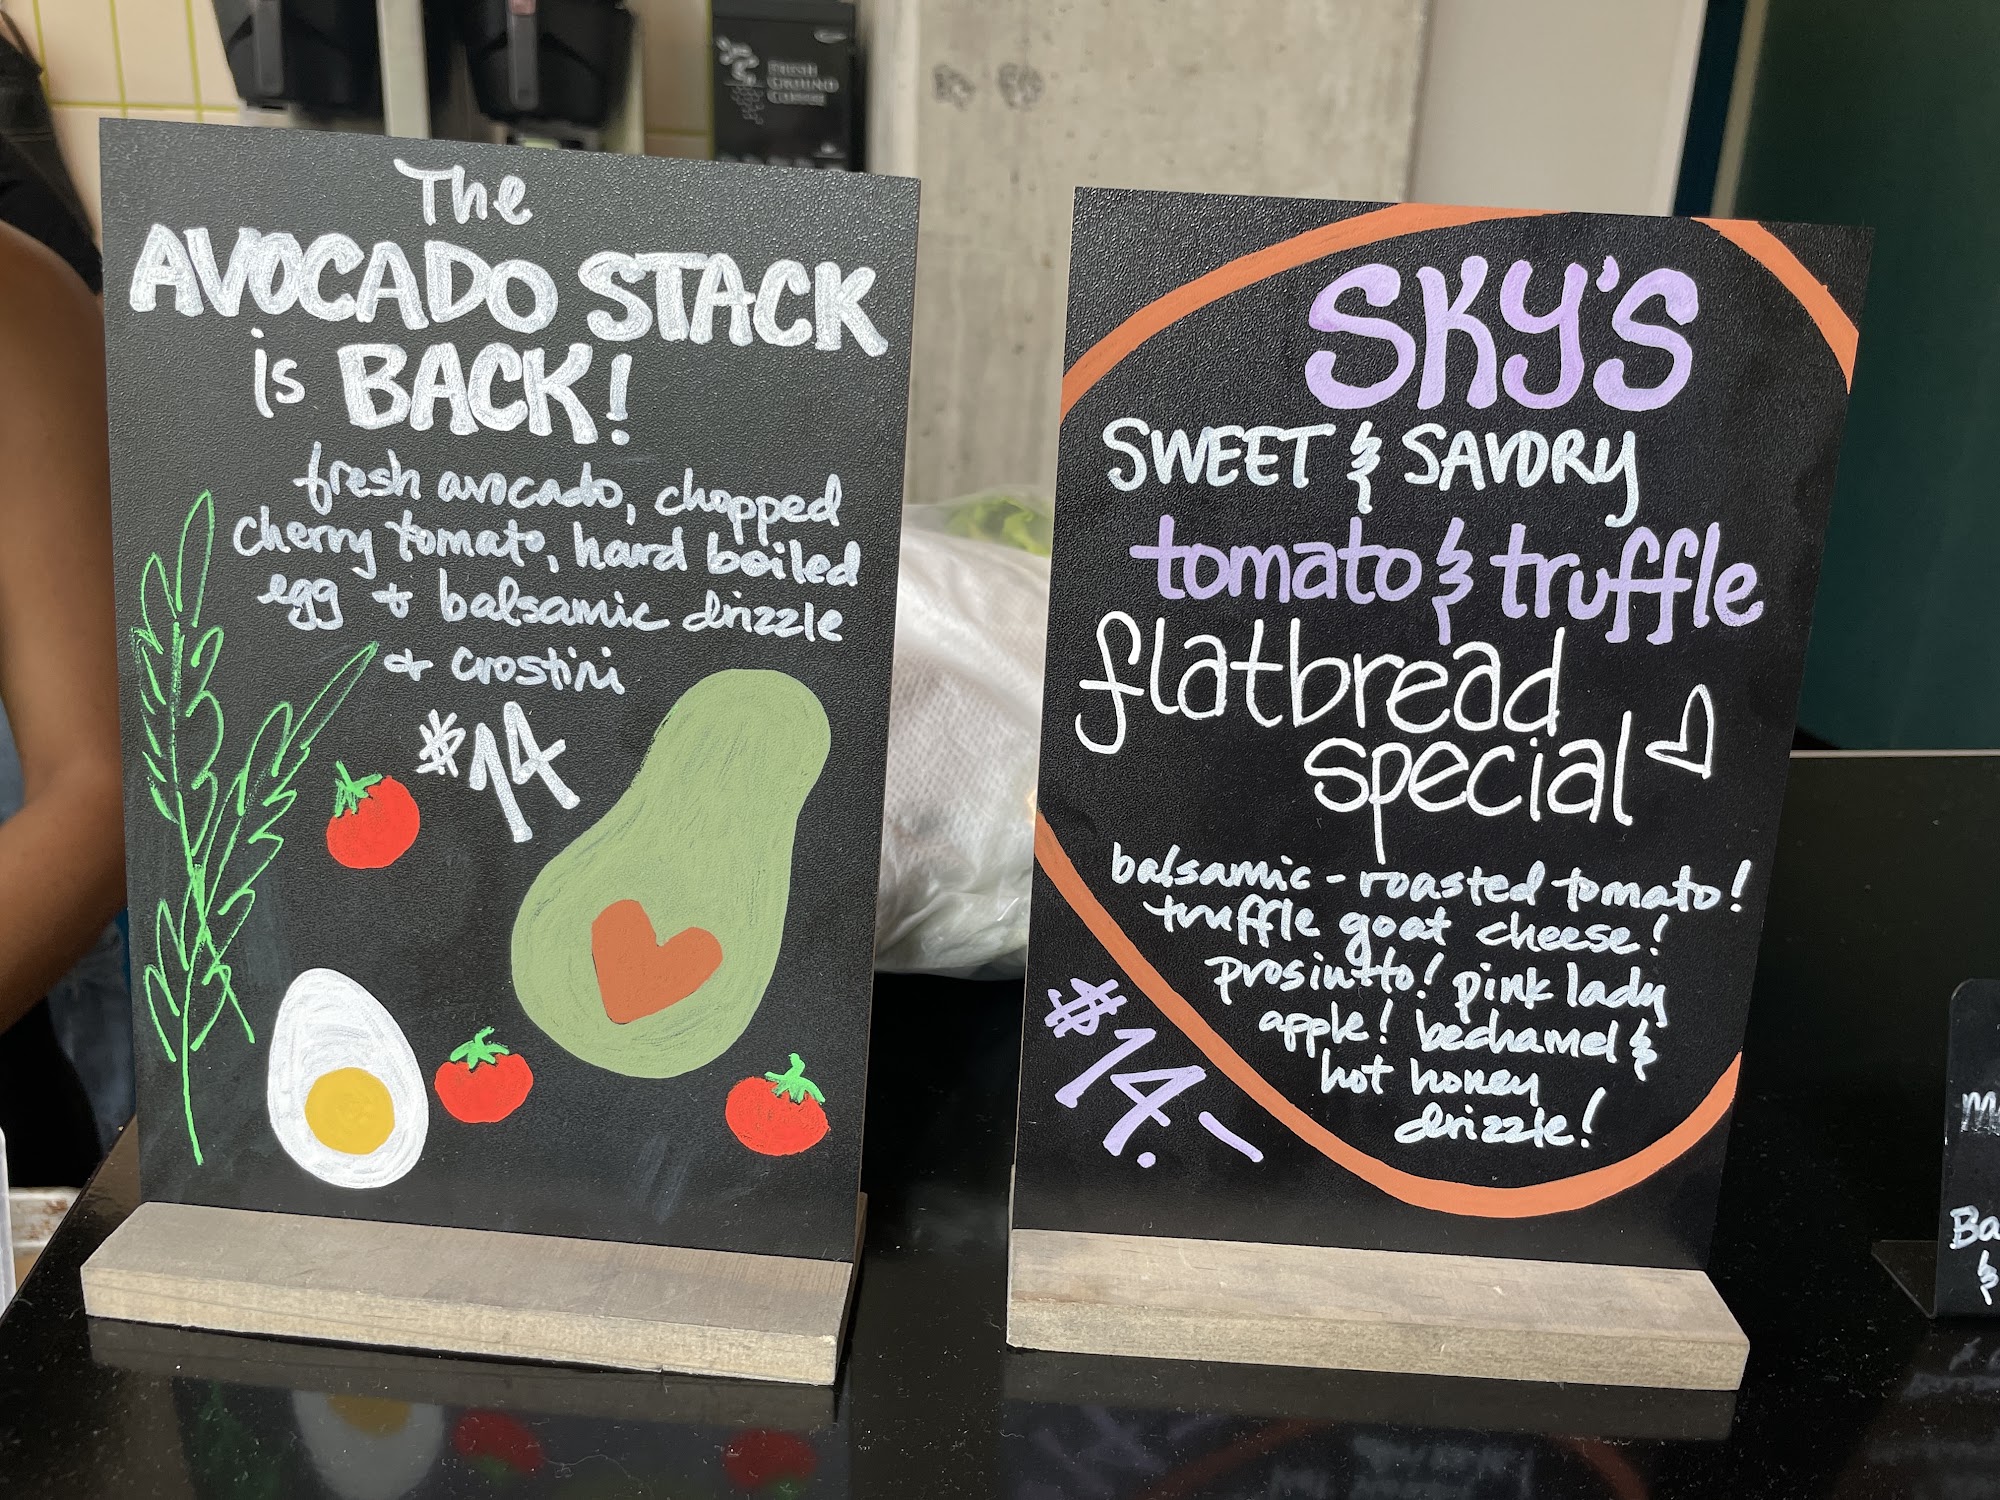 FRESH
GROUND
COFFEE
The
AVOCADO STACK
is BACK!
fresh avocado, chopped
cherry tomato, hard boiled
egg + balsamic drizzle
+ crostini
$14
SKY'S
SWEET & SAVORY
tomato & truffle
flatbread
special
balsamic-roasted tomato!
truffle goat cheese!
prosiutto! pink lady
apple! bechamel &
hot honey
drizzle!
$14.-
Ba
&